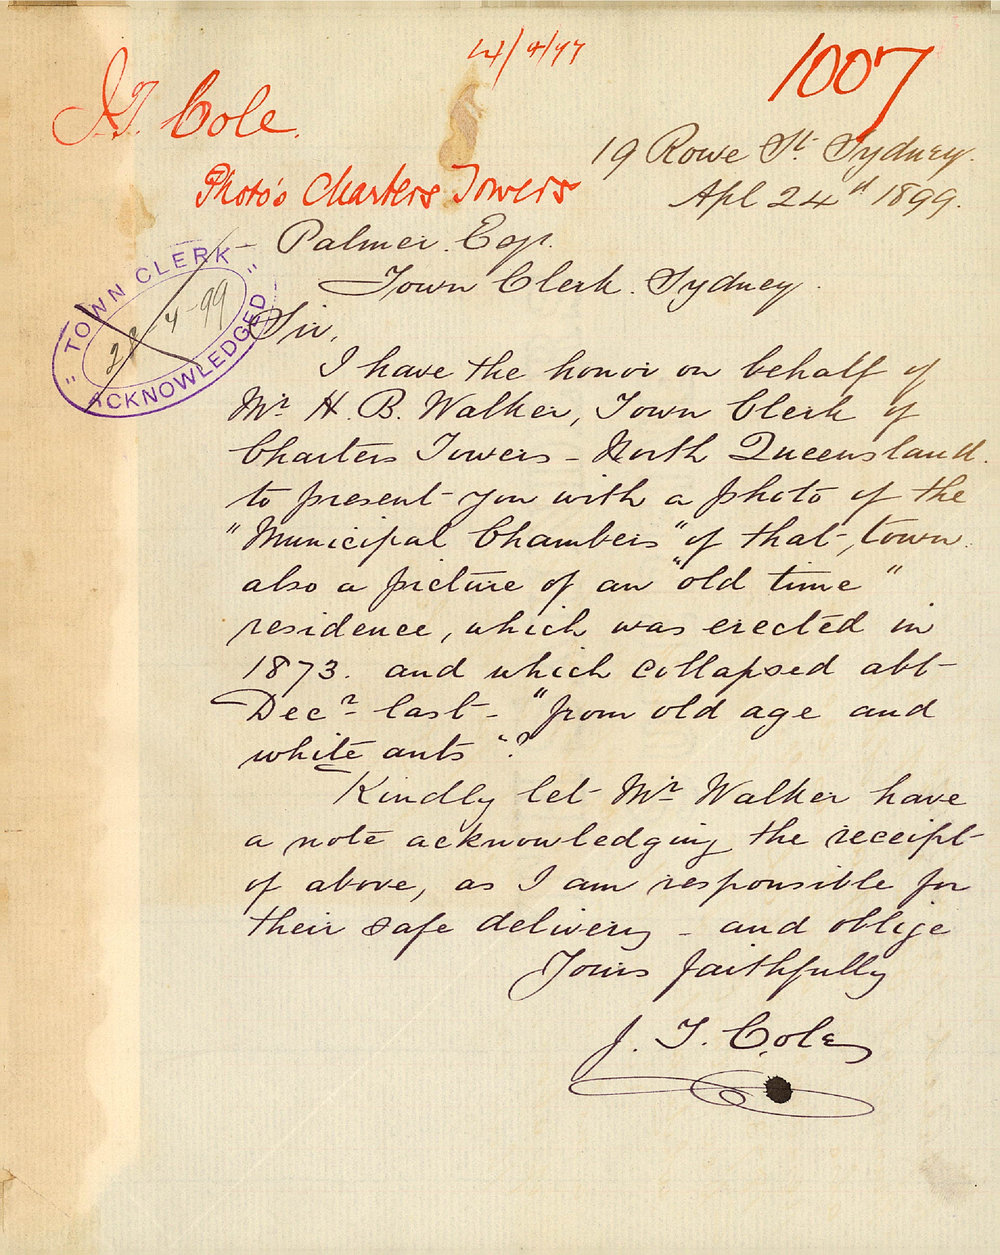 24/4/99
1007
J.T. Cole.
Photo's Charters Towers
19 Rowe St. Sydney.
Apl 24th 1899.
— Palmer. Esqr.
Town Clerk. Sydney.
"TOWN CLERK"
28-4-99
ACKNOWLEDGED
Sir,
I have the honor on behalf of
Mr. H. B. Walker, Town Clerk of
Charters Towers – North Queensland.
to present you with a photo of the
"Municipal Chambers" of that town.
also a picture of an "old time"
residence, which was erected in
1873. and which collapsed abt
Decr. last – "from old age and
white ants".
Kindly let Mr. Walker have
a note acknowledging the receipt
of above, as I am responsible for
their safe delivery – and oblige
Yours faithfully
J. T. Cole